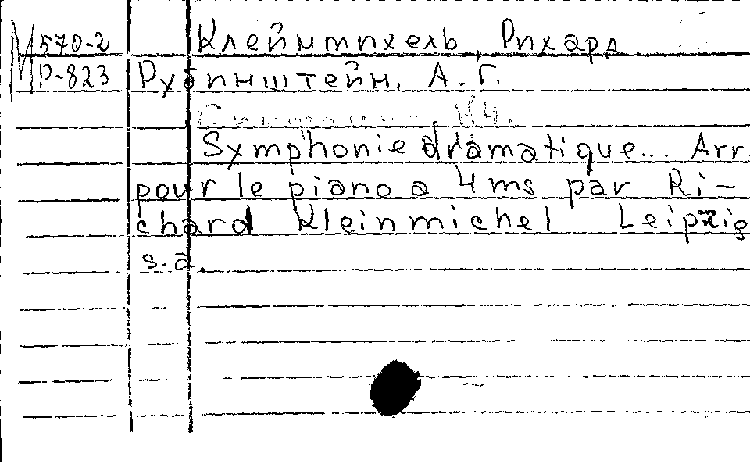 М 570-2 Клеймихель, Рихард
Р-823 Рубинштейн, А. Г.
№4.
Symphonie dramatique... Arr.
pour le piano a 4 ms par Ri-
chard Kleinmichel Leipzig
s.a.